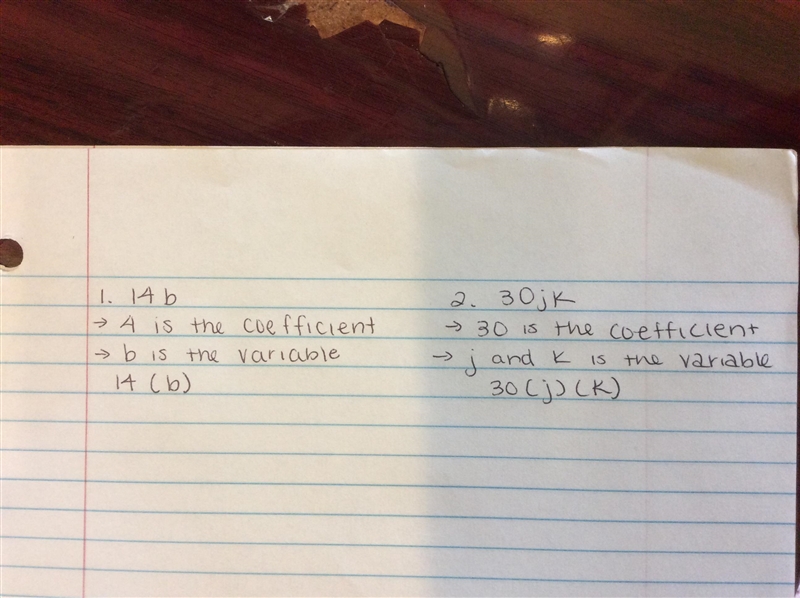 1. 14b
→ 4 is the coefficient
→ b is the variable
14 (b)
2. 30jk
→ 30 is the coefficient
→ j and k is the variable
30(j)(k)